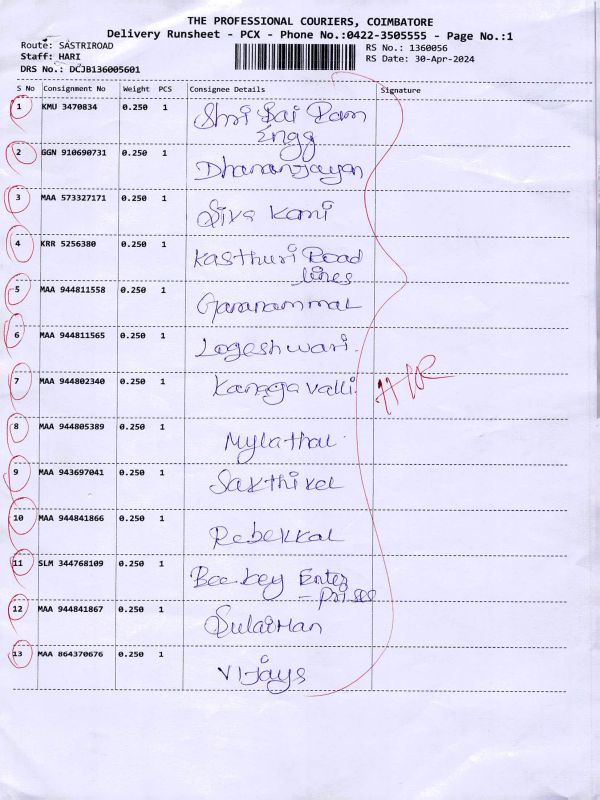 THE PROFESSIONAL COURIERS, COIMBATORE
Delivery Runsheet - PCX - Phone No.:0422-3505555 - Page No.:1
Route: SASTRIROAD RS No.: 1360056
Staff: HARI RS Date: 30-Apr-2024
DRS No.: DCJB136005601
S No Consignment No Weight PCS Consignee Details Signature
1 KMU 3470834 0.250 1 Shri Sai Ram
Engg
2 GGN 910690731 0.250 1 Dhananjayan
3 MAA 573327171 0.250 1 Siva Kami
4 KRR 5256380 0.250 1 Kasthuri Road
lines
5 MAA 944811558 0.250 1
6 MAA 944811565 0.250 1 Logeshwari.
7 MAA 944802340 0.250 1 Kanagavalli.
8 MAA 944805389 0.250 1 Mylathal.
9 MAA 943697041 0.250 1 Sakthivel
10 MAA 944841866 0.250 1 Rebekkal
11 SLM 344768109 0.250 1 Beekey Enter
-prises
12 MAA 944841867 0.250 1 Sulaiman
13 MAA 864370676 0.250 1 Vijays